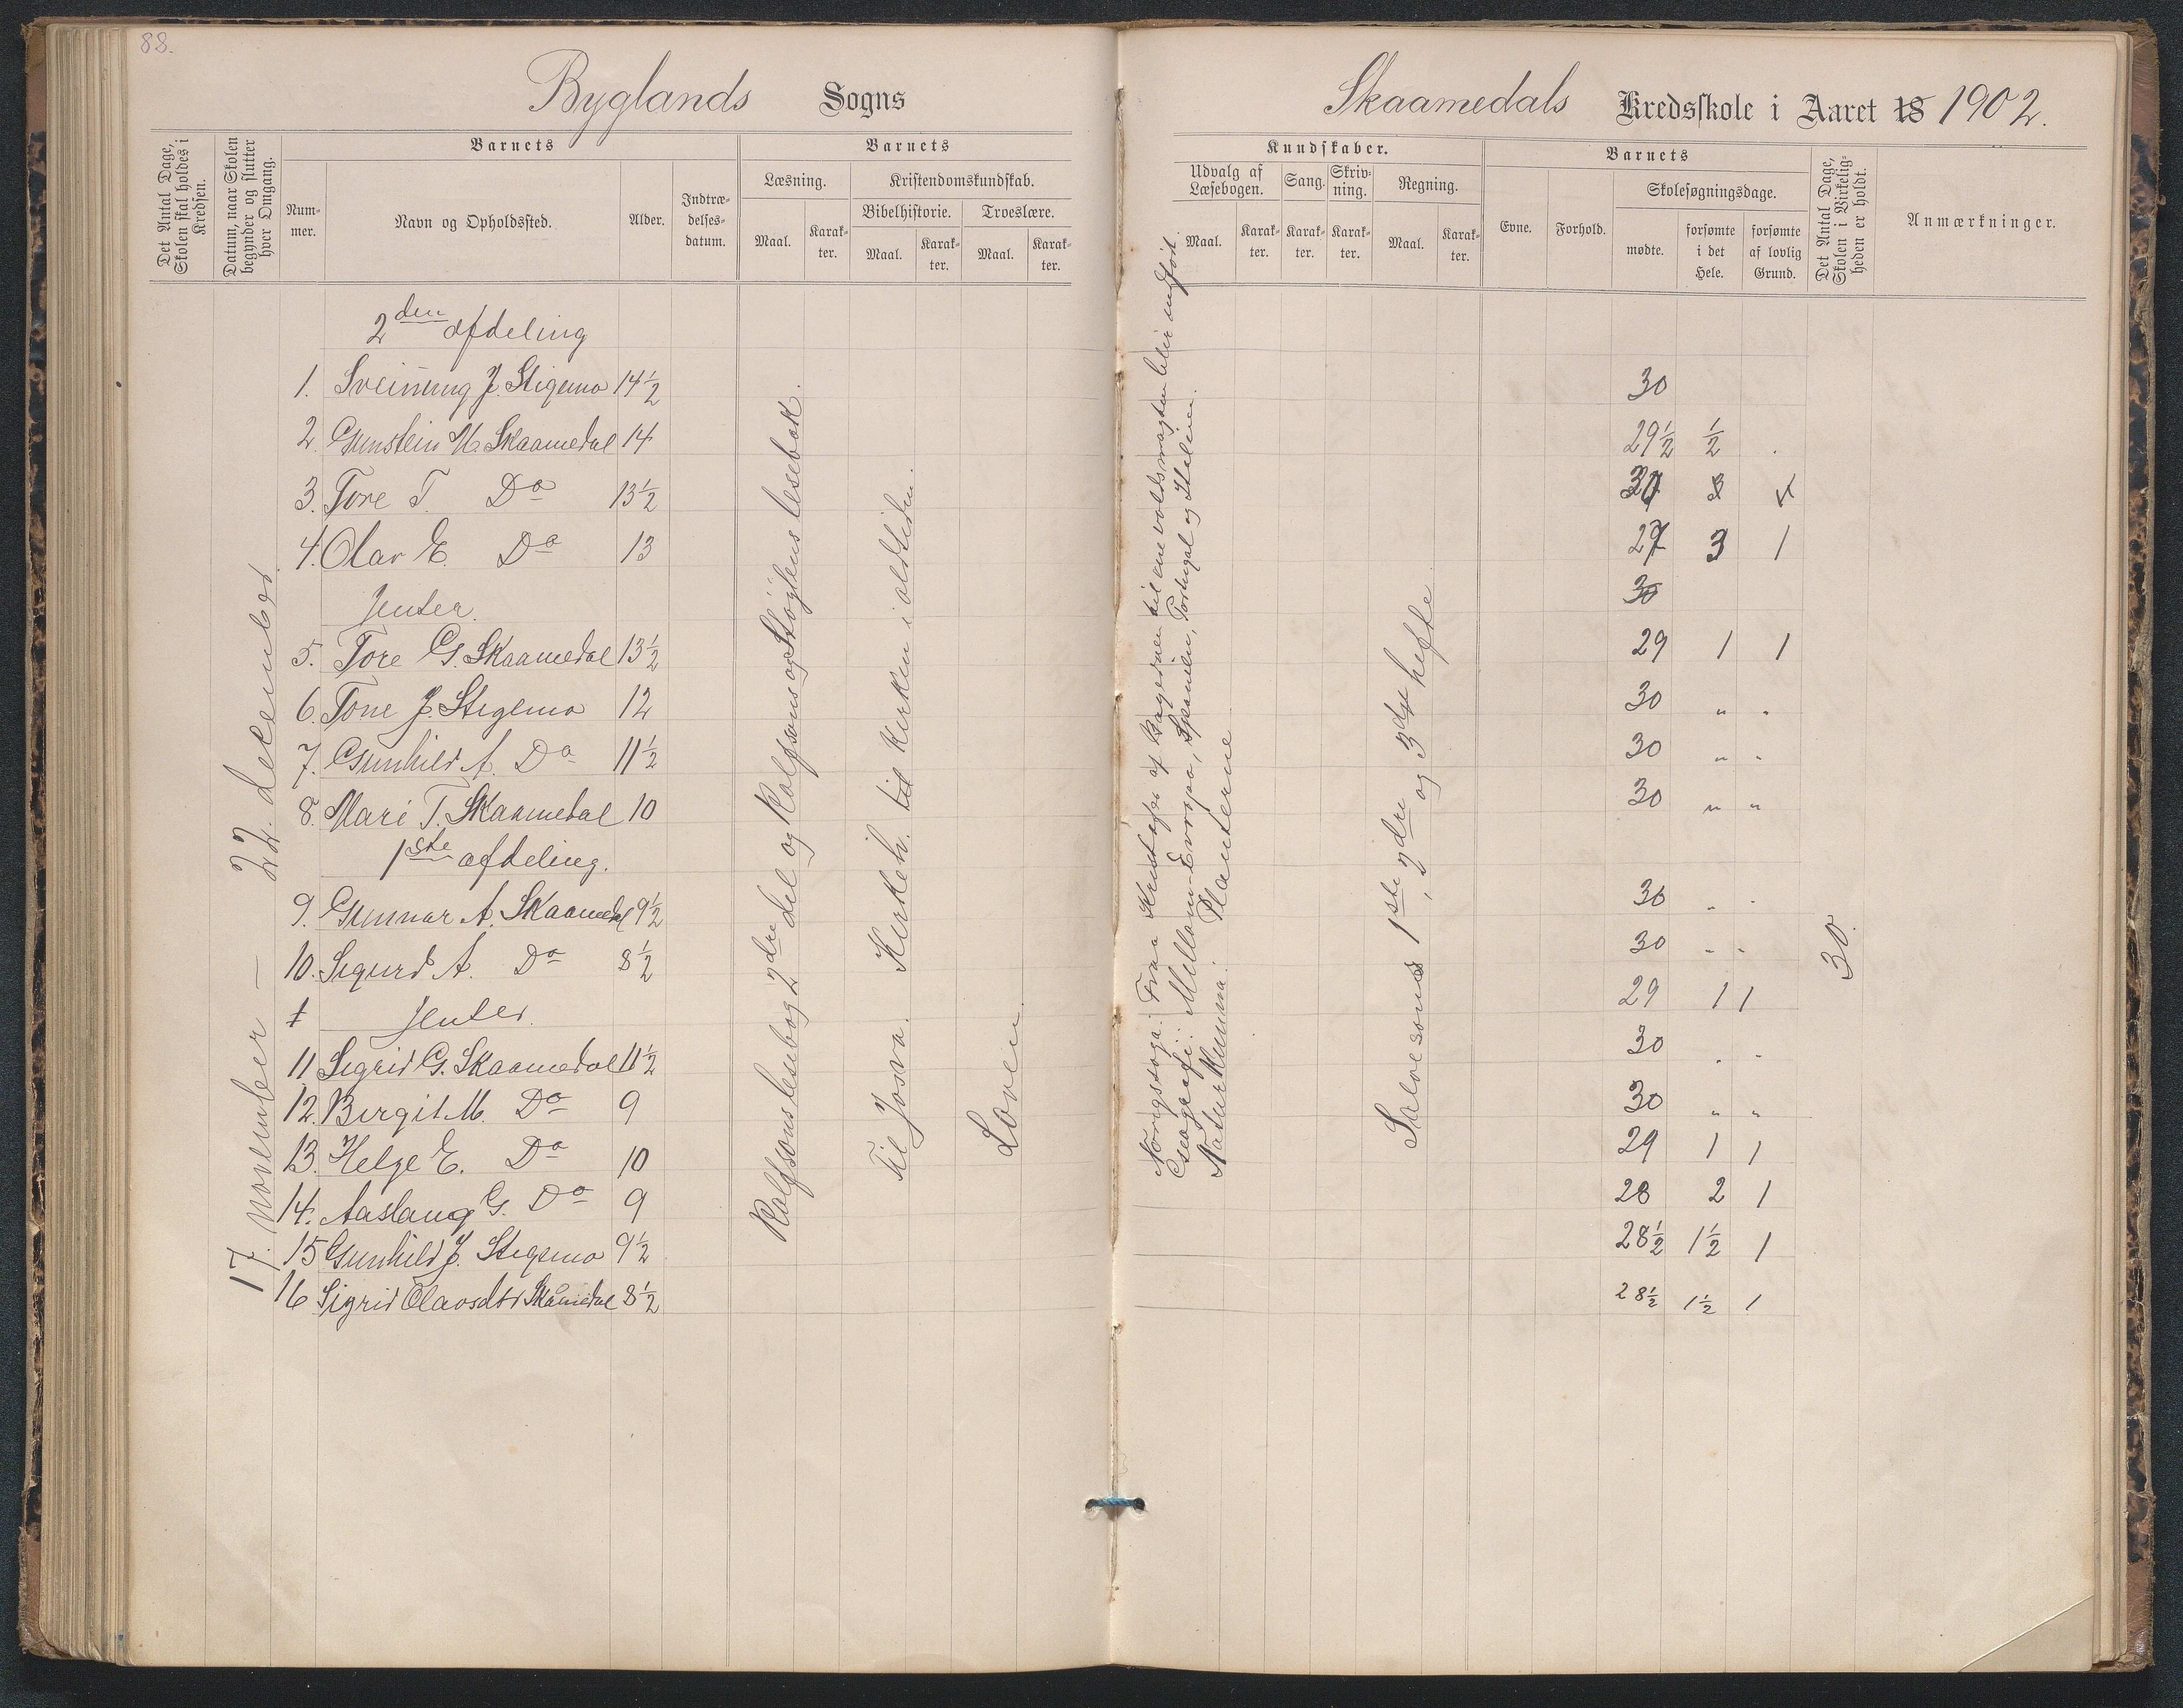 88.
Byglands Sogns
Skaamedals Kredsskole i Aaret 18 1902.
Det Antal Dage, Skolen skal holdes i Kredsen.
Datum, naar Skolen begynder og slutter hver Omgang.
Barnets
Num-mer.
Navn og Opholdssted.
Alder.
Indtræ-delses-datum.
Barnets
Læsning.
Maal.
Karak-ter.
Kristendomskundskab.
Bibelhistorie.
Maal.
Karak-ter.
Troeslære.
Maal.
Karak-ter.
Kundskaber.
Udvalg af Læsebogen.
Maal.
Karak-ter.
Sang.
Karak-ter.
Skriv-ning.
Karak-ter.
Regning.
Maal.
Karak-ter.
Barnets
Evne.
Forhold.
Skolesøgningsdage.
mødte.
forsømte i det Hele.
forsømte af lovlig Grund.
Det Antal Dage, Skolen i Virkelig-heden er holdt.
Anmærkninger.
17. november — 22. december.
2den afdeling
1. Sveinung J. Stigemo 14½ 30
2. Gunstein M. Skaamedal 14 29½ ½ .
3. Tore T. Do 13½ 30
4. Olav E. Do 13 27 3 1
Jenter. 30
5. Tore G. Skaamedal 13½ 29 1 1
6. Tone J. Stigemo 12 30 " "
7. Gunhild A. Do 11½ 30 " "
8. Mari T. Skaamedal 10 30 " "
1ste afdeling.
9. Gunnar A. Skaamedal 9½ 30 " "
10. Sigurd A. Do 8½ 30 " "
Jenter. 29 1 1
11 Sigrid G. Skaamedal 11½ 30 " "
12. Birgit M. Do 9 30 " "
13. Helge E. Do 10 29 1 1
14. Aaslaug G. Do 9 28 2 1
15 Gunhild J. Stigemo 9½ 28½ 1½ 1
16 Sigrid Olavsdtr Skåmedal 8½ 28½ 1½ 1
Rolfsons lesebog 2dre del og Rolfsons og Støylens lesebok.
Til Josva. Kirkeh. til Kirken i oldtiden.
Loven
Norigssoga: Fraa Krist af Bagerne til enevoldsmagten blir indført.
Geografi: Mellom-Evropa, Spanien, Portugal og Italien.
Naturkunna: Planterne
Salvesons 1ste, 2dre og 3dje hefte
30.